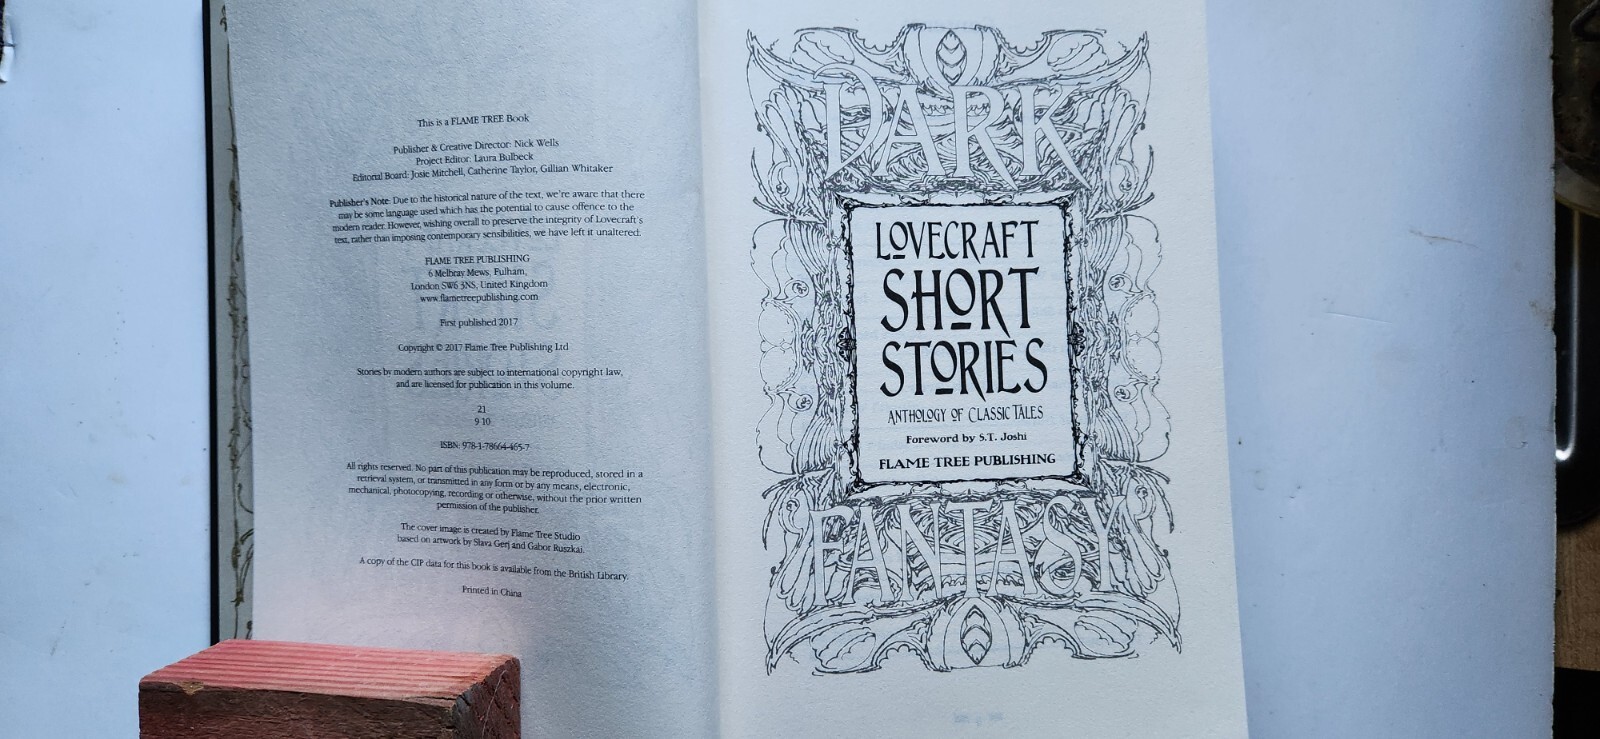 This is a FLAME TREE Book
Publisher & Creative Director: Nick Wells
Project Editor: Laura Bulbeck
Editorial Board: Josie Mitchell, Catherine Taylor, Gillian Whitaker
Publisher's Note: Due to the historical nature of the text, we're aware that there
may be some language used which has the potential to cause offence to the
modern reader. However, wishing overall to preserve the integrity of Lovecraft's
text, rather than imposing contemporary sensibilities, we have left it unaltered.
FLAME TREE PUBLISHING
6 Melbray Mews, Fulham,
London SW6 3NS, United Kingdom
www.flametreepublishing.com
First published 2017
Copyright © 2017 Flame Tree Publishing Ltd
Stories by modern authors are subject to international copyright law,
and are licensed for publication in this volume.
21
9 10
ISBN: 978-1-78664-465-7
All rights reserved. No part of this publication may be reproduced, stored in a
retrieval system, or transmitted in any form or by any means, electronic,
mechanical, photocopying, recording or otherwise, without the prior written
permission of the publisher.
The cover image is created by Flame Tree Studio
based on artwork by Slava Gerj and Gabor Ruszkai.
A copy of the CIP data for this book is available from the British Library.
Printed in China
DARK
LOVECRAFT
SHORT
STORIES
ANTHOLOGY OF CLASSIC TALES
Foreword by S.T. Joshi
FLAME TREE PUBLISHING
FANTASY